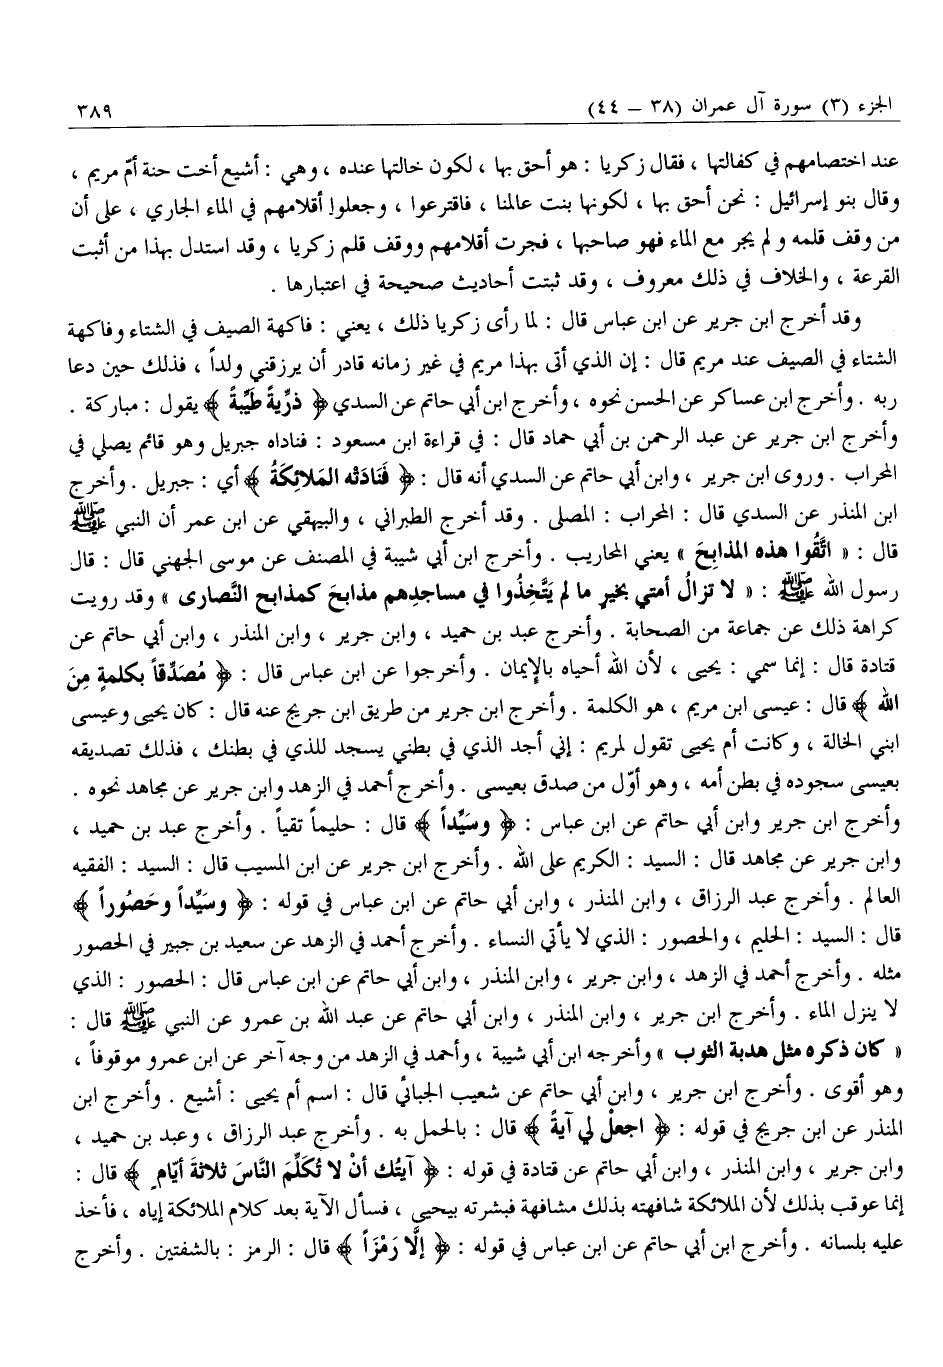 الجزء (٣) سورة آل عمران (٣٨ – ٤٤) ٣٨٩
عند اختصامهم في كفالتها ، فقال زكريا : هو أحق بها ، لكون خالتها عنده ، وهي : أشيع أخت حنة أمّ مريم ،
وقال بنو إسرائيل : نحن أحق بها ، لكونها بنت عالمنا ، فاقترعوا ، وجعلوا أقلامهم في الماء الجاري ، على أن
من وقف قلمه ولم يجر مع الماء فهو صاحبها ، فجرت أقلامهم ووقف قلم زكريا ، وقد استدل بهذا من أثبت
القرعة ، والخلاف في ذلك معروف ، وقد ثبتت أحاديث صحيحة في اعتبارها .
وقد أخرج ابن جرير عن ابن عباس قال : لما رأى زكريا ذلك ، يعني : فاكهة الصيف في الشتاء وفاكهة
الشتاء في الصيف عند مريم قال : إن الذي أتى بهذا مريم في غير زمانه قادر أن يرزقني ولداً ، فذلك حين دعا
ربه . وأخرج ابن عساكر عن الحسن نحوه ، وأخرج ابن أبي حاتم عن السدي ﴿ ذرِّيةً طَيِّبةً ﴾ يقول : مباركة .
وأخرج ابن جرير عن عبد الرحمن بن أبي حماد قال : في قراءة ابن مسعود : فناداه جبريل وهو قائم يصلي في
المحراب . وروى ابن جرير ، وابن أبي حاتم عن السدي أنه قال : ﴿ فَنَادَتْه المَلائِكَةُ ﴾ أي : جبريل . وأخرج
ابن المنذر عن السدي قال : المحراب : المصلى . وقد أخرج الطبراني ، والبيهقي عن ابن عمر أن النبي ﷺ
قال : « اتَّقُوا هذه المذابِحَ » يعني المحاريب . وأخرج ابن أبي شيبة في المصنف عن موسى الجهني قال : قال
رسول الله ﷺ : « لا تزالُ أمتي بخيرٍ ما لم يَتَّخِذُوا في مساجدِهم مذابحَ كمذابح النَّصارى » وقد رويت
كراهة ذلك عن جماعة من الصحابة . وأخرج عبد بن حميد ، وابن جرير ، وابن المنذر ، وابن أبي حاتم عن
قتادة قال : إنما سمي : يحيى ، لأن الله أحياه بالإيمان . وأخرجوا عن ابن عباس قال : ﴿ مُصَدِّقاً بكلمةٍ مِنَ
الله ﴾ قال : عيسى ابن مريم ، هو الكلمة . وأخرج ابن جرير من طريق ابن جريج عنه قال : كان يحيى وعيسى
ابني الخالة ، وكانت أم يحيى تقول لمريم : إني أجد الذي في بطني يسجد للذي في بطنك ، فذلك تصديقه
بعيسى سجوده في بطن أمه ، وهو أوّل من صدق بعيسى . وأخرج أحمد في الزهد وابن جرير عن مجاهد نحوه .
وأخرج ابن جرير وابن أبي حاتم عن ابن عباس : ﴿ وسَيِّداً ﴾ قال : حليماً تقياً . وأخرج عبد بن حميد ،
وابن جرير عن مجاهد قال : السيد : الكريم على الله . وأخرج ابن جرير عن ابن المسيب قال : السيد : الفقيه
العالم . وأخرج عبد الرزاق ، وابن المنذر ، وابن أبي حاتم عن ابن عباس في قوله : ﴿ وسَيِّداً وحَصُوراً ﴾
قال : السيد : الحليم ، والحصور : الذي لا يأتي النساء . وأخرج أحمد في الزهد عن سعيد بن جبير في الحصور
مثله . وأخرج أحمد في الزهد ، وابن جرير ، وابن المنذر ، وابن أبي حاتم عن ابن عباس قال : الحصور : الذي
لا ينزل الماء . وأخرج ابن جرير ، وابن المنذر ، وابن أبي حاتم عن عبد الله بن عمرو عن النبي ﷺ قال :
« كان ذكره مثل هدبة الثوب » وأخرجه ابن أبي شيبة ، وأحمد في الزهد من وجه آخر عن ابن عمرو موقوفاً ،
وهو أقوى . وأخرج ابن جرير ، وابن أبي حاتم عن شعيب الجبائي قال : اسم أم يحيى : أشيع . وأخرج ابن
المنذر عن ابن جريج في قوله : ﴿ اجعلْ لي آيةً ﴾ قال : بالحمل به . وأخرج عبد الرزاق ، وعبد بن حميد ،
وابن جرير ، وابن المنذر ، وابن أبي حاتم عن قتادة في قوله : ﴿ آيتُك أنْ لا تُكلِّمَ النَّاسَ ثلاثةَ أيّامٍ ﴾ قال :
إنما عوقب بذلك لأن الملائكة شافهته بذلك مشافهة فبشرته بيحيى ، فسأل الآية بعد كلام الملائكة إياه ، فأخذ
عليه بلسانه . وأخرج ابن أبي حاتم عن ابن عباس في قوله : ﴿ إلَّا رَمْزاً ﴾ قال : الرمز : بالشفتين . وأخرج